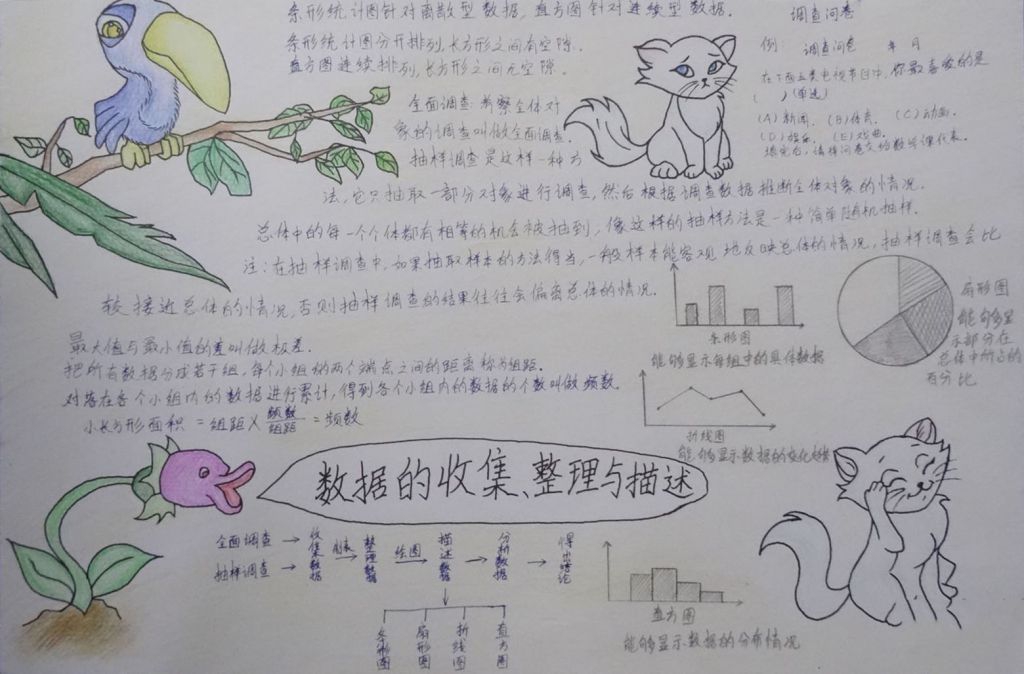 条形统计图针对离散型数据，直方图针对连续型数据．
条形统计图分开排列，长方形之间有空隙．
直方图连续排列，长方形之间无空隙．
全面调查：考察全体对
象的调查叫做全面调查．
抽样调查是这样一种方
法，它只抽取一部分对象进行调查，然后根据调查数据推断全体对象的情况．
总体中的每一个个体都有相等的机会被抽到，像这样的抽样方法是一种简单随机抽样．
注：在抽样调查中，如果抽取样本的方法得当，一般样本能客观地反映总体的情况，抽样调查会比
较接近总体的情况，否则抽样调查的结果往往会偏离总体的情况．
调查问卷
例： 调查问卷 年 月
在下面五类电视节目中，你最喜爱的是
( )(单选)
(A)新闻． (B)体育． (C)动画．
(D)娱乐． (E)戏曲．
填完后，请将问卷交给数学课代表．
最大值与最小值的差叫做极差．
把所有数据分成若干组，每个小组的两个端点之间的距离称为组距．
对落在各个小组内的数据进行累计，得到各个小组内的数据的个数叫做频数．
小长方形面积 = 组距 × 频数/组距 = 频数
条形图
能够显示每组中的具体数据
扇形图
能够显
示部分在
总体中所占的
百分比
折线图
能够显示数据的变化趋势
数据的收集、整理与描述
全面调查
抽样调查
收集数据
制表
整理数据
绘图
描述数据
分析数据
得出结论
条形图
扇形图
折线图
直方图
直方图
能够显示数据的分布情况